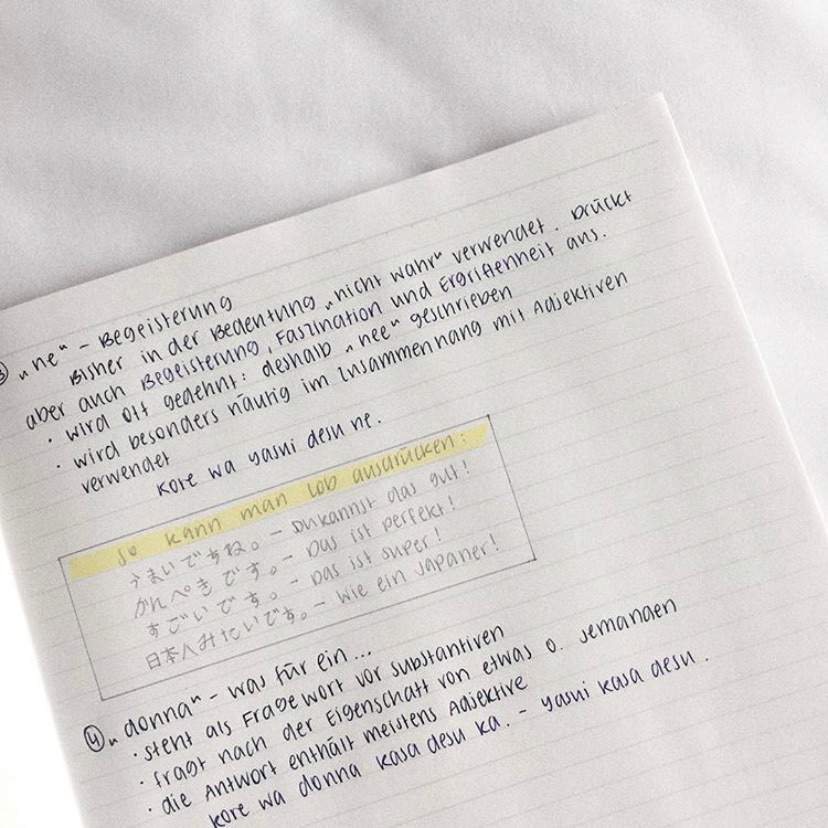 ③ „ne" - Begeisterung
Bisher in der Bedeutung „nicht wahr" verwendet. Drückt
aber auch Begeisterung, Faszination und Ergriffenheit aus.
• wird oft gedehnt: deshalb „nee" geschrieben
• wird besonders häufig im Zusammenhang mit Adjektiven
verwendet
Kore wa yasui desu ne.
So kann man Lob ausdrücken:
うまいですね。- Du kannst das gut!
かんぺきです。- Das ist perfekt!
すごいです。- Das ist super!
日本人みたいです。- Wie ein Japaner!
④ „donna" - was für ein...
• steht als Fragewort vor Substantiven
• fragt nach der Eigenschaft von etwas o. jemanden
• die Antwort enthält meistens Adjektive
Kore wa donna kasa desu ka. - Yasui kasa desu.